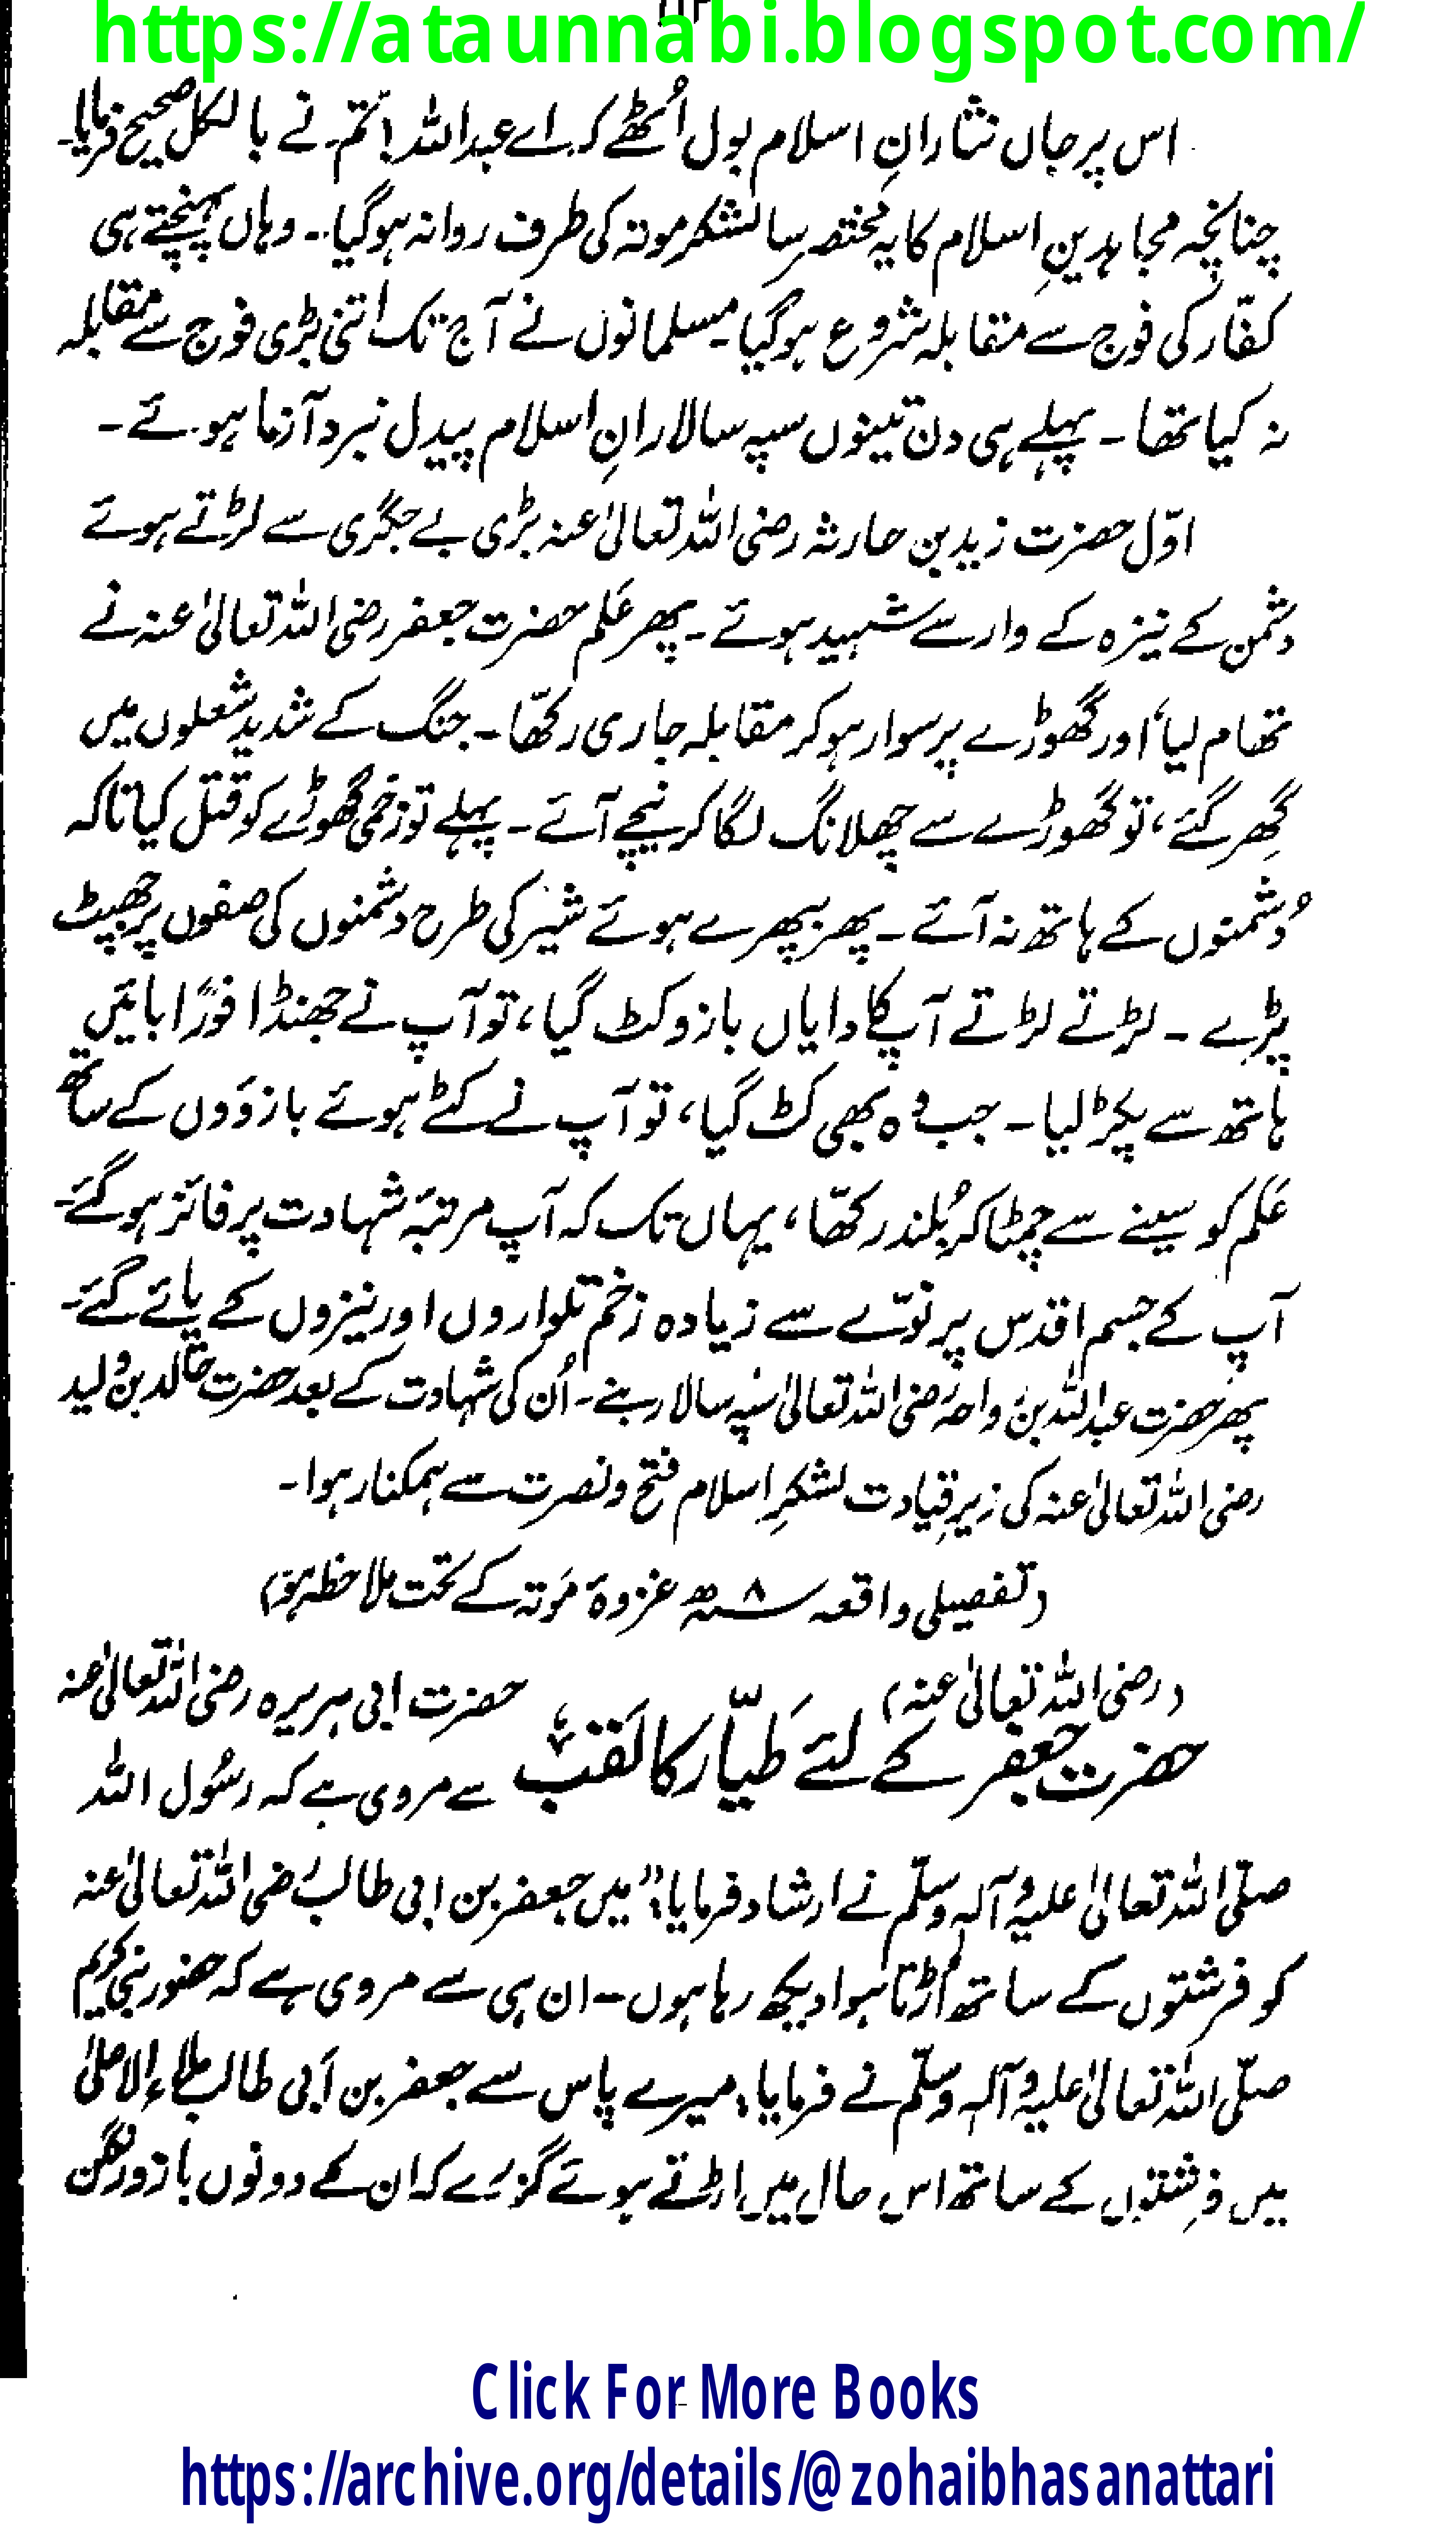 https://ataunnabi.blogspot.com/
اس پر جاں نثارانِ اسلام بول اُٹھے کہ اے عبداللہ! تم نے بالکل صحیح فرمایا۔
چنانچہ مجاہدینِ اسلام کا یہ مختصر سا لشکر موتہ کی طرف روانہ ہوگیا۔ وہاں پہنچتے ہی
کفّار کی فوج سے مقابلہ شروع ہوگیا۔ مسلمانوں نے آج تک اتنی بڑی فوج سے مقابلہ
نہ کیا تھا۔ پہلے ہی دن تینوں سپہ سالارانِ اسلام پیدل نبرد آزما ہوئے۔
اوّل حضرت زید بن حارثہ رضی اللہ تعالیٰ عنہ بڑی بے جگری سے لڑتے ہوئے
دشمن کے نیزہ کے وار سے شہید ہوئے۔ پھر عَلم حضرت جعفر رضی اللہ تعالیٰ عنہ نے
تھام لیا، اور گھوڑے پر سوار ہو کر مقابلہ جاری رکھّا۔ جنگ کے شدید شعلوں میں
گِھر گئے، تو گھوڑے سے چھلانگ لگا کر نیچے آئے۔ پہلے تو زخمی گھوڑے کو قتل کیا تاکہ
دُشمنوں کے ہاتھ نہ آئے۔ پھر بپھرے ہوئے شیر کی طرح دشمنوں کی صفوں پر جھپٹ
پڑے۔ لڑتے لڑتے آپ کا دایاں بازو کٹ گیا، تو آپ نے جھنڈا فورًا بائیں
ہاتھ سے پکڑ لیا۔ جب وہ بھی کٹ گیا، تو آپ نے کٹے ہوئے بازوؤں کے ساتھ
عَلم کو سینے سے چمٹا کر بُلند رکھّا، یہاں تک کہ آپ مرتبۂ شہادت پر فائز ہوگئے۔
آپ کے جسم اقدس پر نوّے سے زیادہ زخم تلواروں اور نیزوں کے پائے گئے۔
پھر حضرت عبداللہ بن رواحہ رضی اللہ تعالیٰ سپہ سالار بنے۔ اُن کی شہادت کے بعد حضرت خالد بن ولید
رضی اللہ تعالیٰ عنہ کی زیرِ قیادت لشکرِ اسلام فتح و نصرت سے ہمکنار ہوا۔
(تفصیلی واقعہ ۸ھ غزوۂ مَوتہ کے تحت ملاحظہ ہو)
(رضی اللہ تعالیٰ عنہ)
حضرت جعفر کے لئے طَیّار کا لَقَب
حضرت ابی ہریرہ رضی اللہ تعالیٰ عنہ
سے مروی ہے کہ رسُول اللہ
صلّی اللہ تعالیٰ علیہ وآلہٖ وسلّم نے ارشاد فرمایا: "میں جعفر بن ابی طالب رضی اللہ تعالیٰ عنہ
کو فرشتوں کے ساتھ اُڑتا ہوا دیکھ رہا ہوں۔ ان ہی سے مروی ہے کہ حضور نبی کریم
صلّی اللہ تعالیٰ علیہ وآلہٖ وسلّم نے فرمایا: میرے پاس سے جعفر بن اَبی طالب ملاء الاعلیٰ
میں فرشتوں کے ساتھ اس حال میں اڑتے ہوئے گزرے کہ ان کے دونوں بازو رنگین
Click For More Books
https://archive.org/details/@zohaibhasanattari